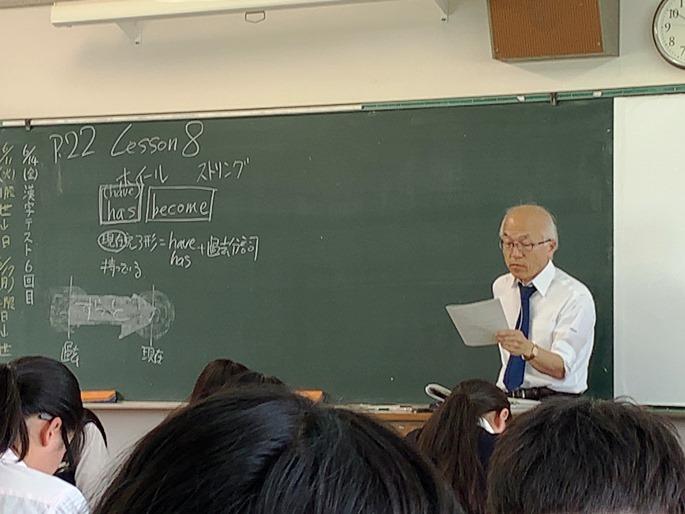 P.22 Lesson 8
ホイール ストリング
(have)
has become
現在完了形 = have
has
+過去分詞
持っている
ずっと
過去 現在
6/14(金)漢字テスト6回目
10
9
8
7